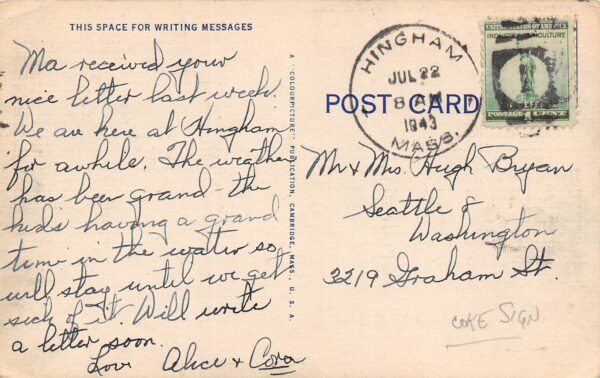 THIS SPACE FOR WRITING MESSAGES
Ma received your
nice letter last week.
We are here at Hingham
for awhile. The weather
has been grand - the
kids having a grand
time in the water so
will stay until we get
sick of it. Will write
a letter soon.
Love Alice & Cora
A "COLOURPICTURE" PUBLICATION, CAMBRIDGE, MASS., U. S. A.
HINGHAM
JUL 22
8 AM
1943
MASS.
UNITED STATES OF AMERICA
INDUSTRY AGRICULTURE
POSTAGE 1 CENT
POST CARD
Mr & Mrs. Hugh Bryan
Seattle 8
Washington
3219 Graham St.
COKE SIGN